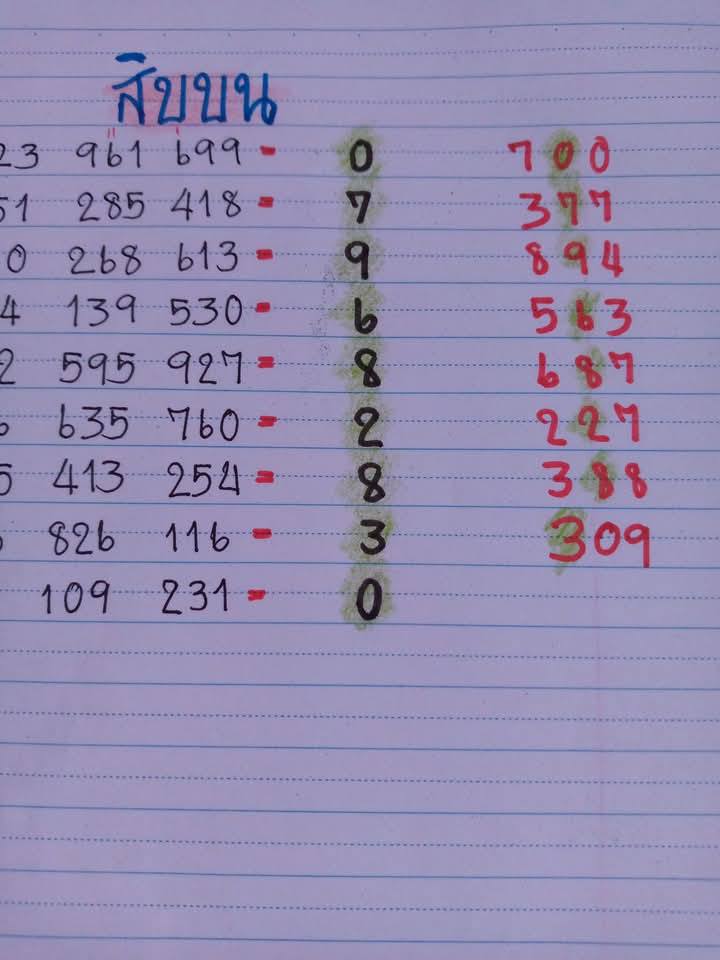 สิบบน
23 961 699 = 0 700
51 285 418 = 7 377
0 268 613 = 9 894
4 139 530 = 6 563
2 595 927 = 8 687
635 760 = 2 227
5 413 254 = 8 388
826 116 = 3 309
109 231 = 0